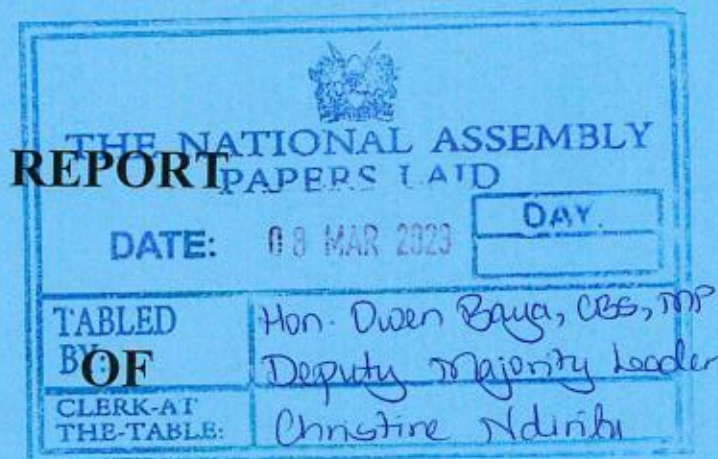 THE NATIONAL ASSEMBLY
REPORT
PAPERS LAID
DATE: 08 MAR 2023 DAY.
TABLED Hon. Owen Baya, CBS, MP
BY: Deputy Majority Leader
OF
CLERK-AT
THE-TABLE: Christine Ndiritu